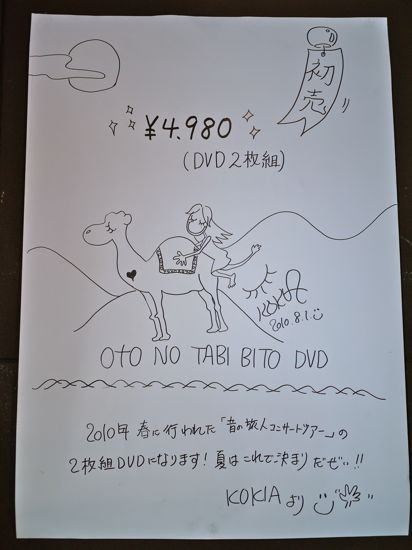 初売
¥4.980
(DVD2枚組)
KOKIA
2010.8.1
OTO NO TABI BITO DVD
2010年 春に行われた「音の旅人コンサートツアー」の
2枚組DVDになります!夏はこれで決まりだぜぃ!!
KOKIAより